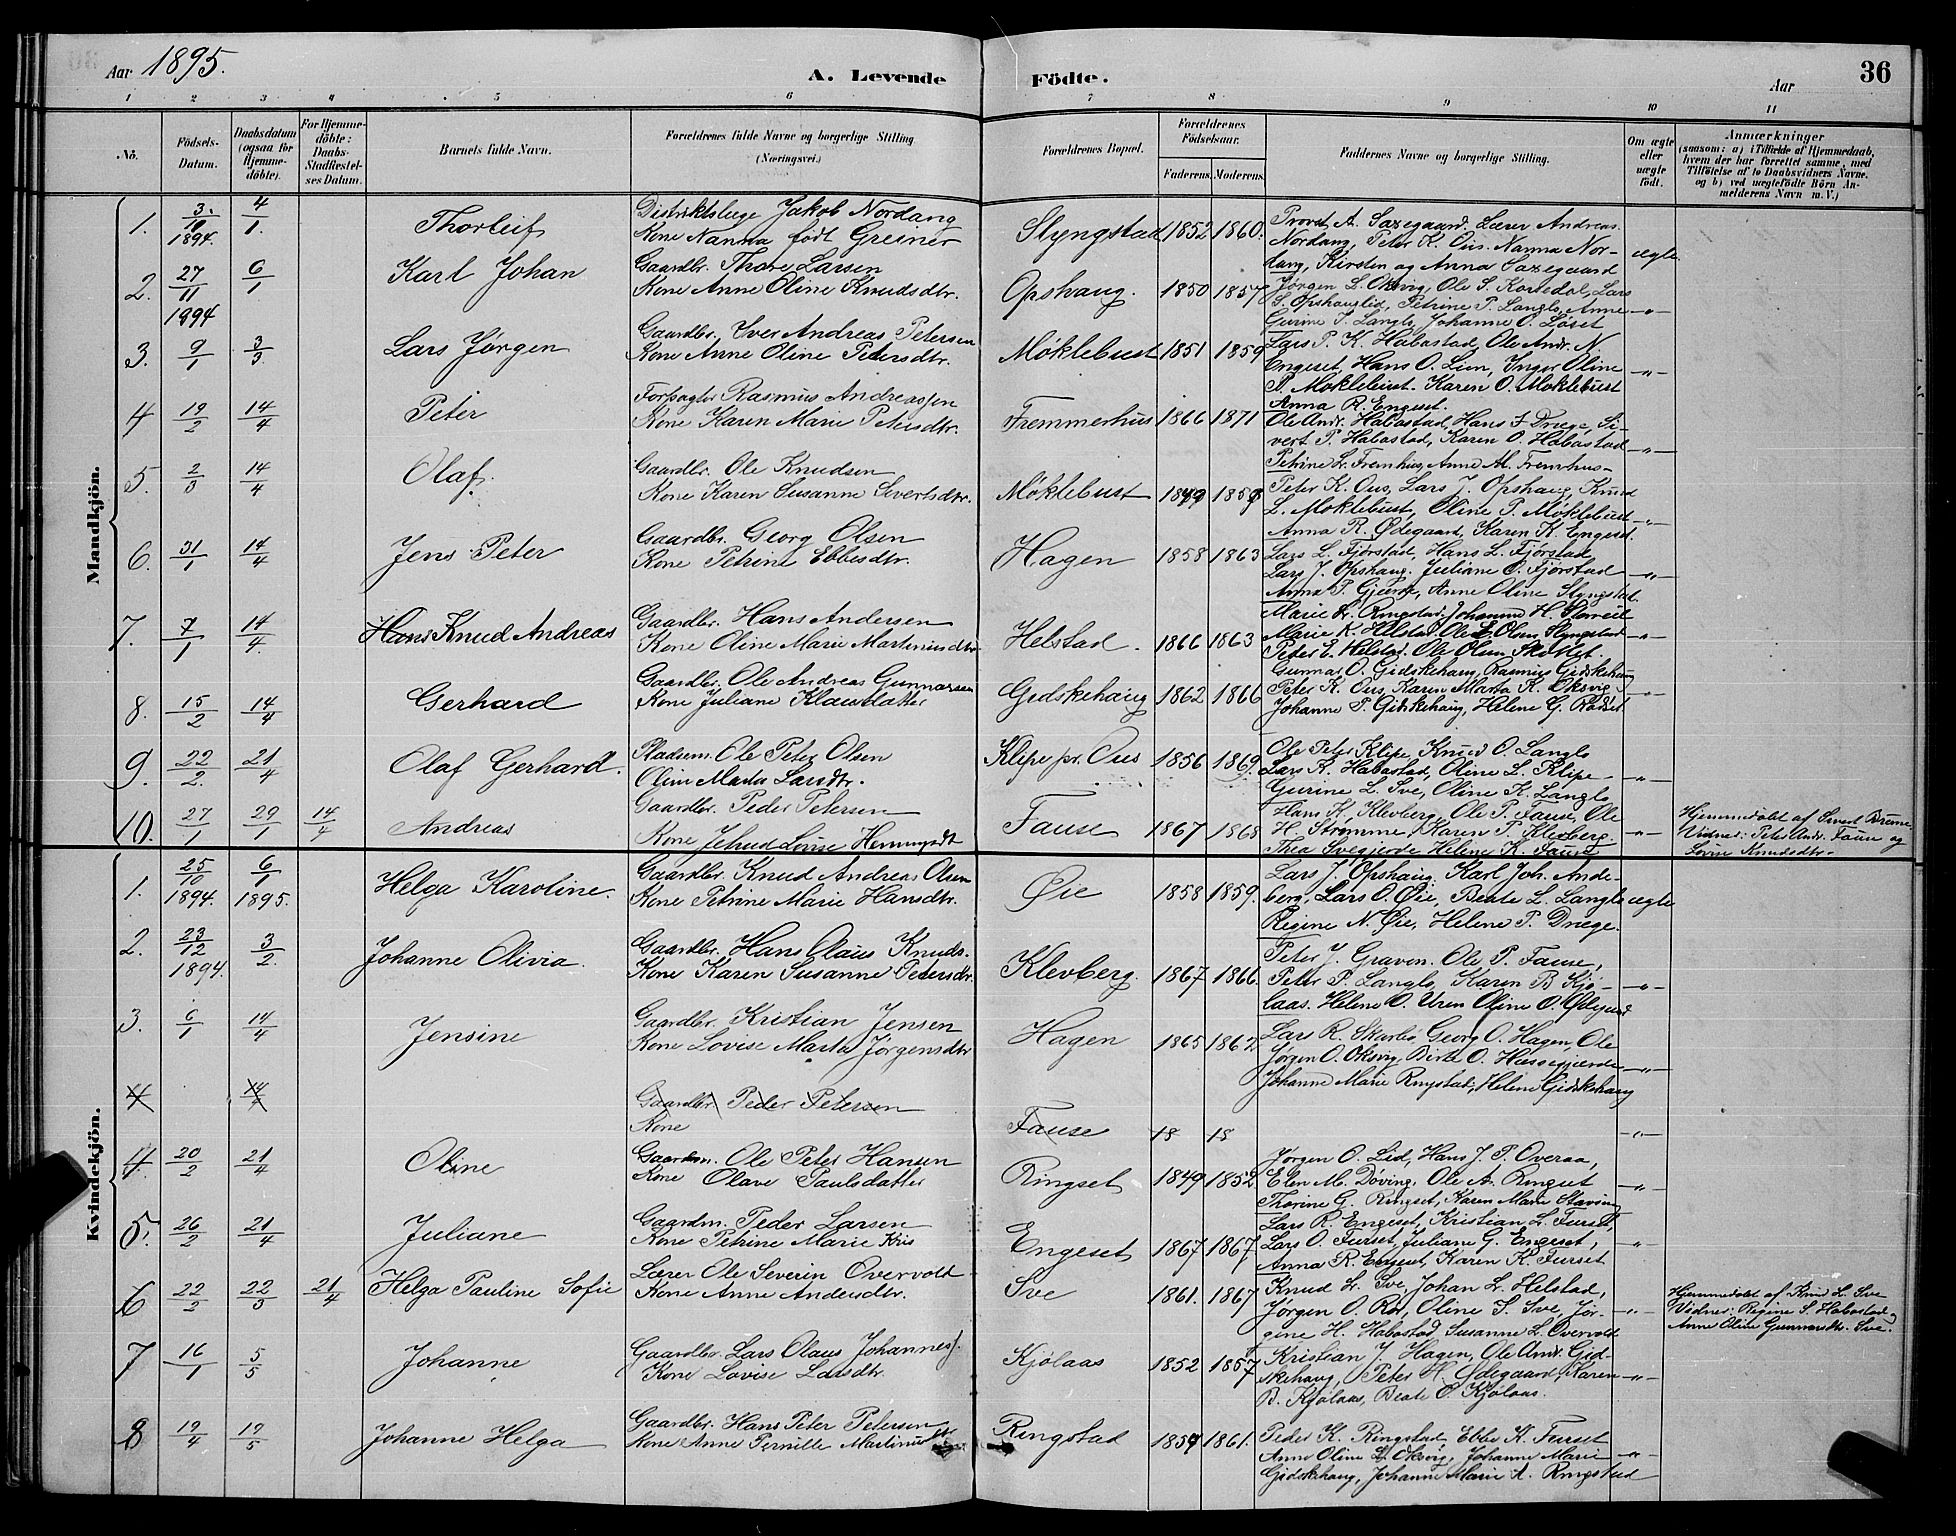 Aar 1895.
A. Levende Födte.
Aar
36
1 2 3 4 5 6 7 8 9 10 11
No.
Födsels-
Datum.
Daabsdatum
(ogsaa for
Hjemme-
döbte).
For Hjemme-
döbte:
Daabs-
Stadfæstel-
ses Datum.
Barnets fulde Navn.
Forældrenes fulde Navne og borgerlige Stilling
(Næringsvei.)
Forældrenes Bopæl.
Forældrenes
Födselsaar.
Faderens. Moderens.
Faddernes Navne og borgerlige Stilling.
Om ægte
eller
uægte
födt.
Anmærkninger
(saasom: a) i Tilfælde af Hjemmedaab,
hvem der har forrettet samme, med
Tilföielse af to Daabsvidners Navne.
og b) ved uægtefödte Börn An-
melderens Navn m. V.)
Mandkjön.
1. 3/10 1894. 4/1. Thorleif
Distriktslæge Jakob Nordang
Kone Nanna født Greiner
Slyngstad 1852 1860.
Provst A. Saxegaard. Lærer Andreas
Nordang, Peter K. Ous. Nanna Nor-
dang, Kirsten og Anna Saxegaard
ægte
2. 27/11 1894 6/1 Karl Johan
Gaardbr. Thore Larsen
Kone Anne Oline Knudsdtr.
Opshaug. 1850 1857
Jørgen L. Oksvig, Ole S. Korsedal, Lars
S. Opshauglid, Petrine P. Langlo, Anne
Gurine T. Langlo, Johanne O. Løset
-"-
3. 9/1 3/3. Lars Jørgen
Gaardbr. Iver Andreas Petersen
Kone Anne Oline Petersdtr.
Møklebust 1851 1859
Lars P. K. Habostad, Ole Andr. N.
Engeset, Hans O. Lien, Inger Oline
P. Moklebust. Karen O. Moklebust
Anna R. Engeset.
-"-
4 19/2 14/4 Peter
Forpagter Rasmus Andreassen
Kone Karen Marie Petersdtr.
Fremmerhus 1866 1871
Ole Andr. Habostad, Hans J. Drege, Si-
vert P. Habostad, Karen O. Habostad
Petrine Fremhus, Anne M. Fremhus-
-"-
5. 2/3 14/4 Olaf.
Gaardbr. Ole Knudsen
Kone Karen Susanne Sivertsdtr.
Møklebust 1849 1859
Peter K. Ous, Lars J. Opshaug, Knud
L. Moklebust, Oline P. Møklebust
Anna R. Ødegaard, Karen K. Engeset.
-"-
6. 31/1 14/4 Jens Peter
Gaardbr. Georg Olsen
Kone Petrine Ebbesdtr.
Hagen 1858 1863
Lars L. Fjørstad, Hans L. Fjørstad,
Lars J. Opshaug. Juliane O. Fjørstad
Anna P. Gjærde, Anne Oline Slyngstad.
-"-
7. 7/1 14/4. Hans Knud Andreas
Gaardbr. Hans Andersen
Kone Oline Marie Martinusdtr.
Helstad. 1866 1863
Marie Ringstad, Johanne H.
Marie K. Helstad, Ole Olsen Slyngstad
Peder E. Helstad. Ole Olsen
-"-
8. 15/2 14/4 Gerhard
Gaardbr. Ole Andreas Gunnarsen
Kone Juliane Klausdatter
Gidskehaug 1862 1866
Gunnar O. Gidskehaug, Rasmus Gidskehaug
Peter K. Ous, Karen Marta K. Oksvig
Johanne P. Gidskehaug, Helene G. Rødset
-"-
9. 22/2. 21/4 Olaf Gerhard.
Pladsm. Ole Peter Olsen
Olin Marta Larsdtr.
Klipe pr. Ous 1856 1869.
Ole Peter Klipe, Knud O. Langlo
Lars K. Habostad, Oline L. Klipe
Gurine L. Sve, Oline K. Langlo
-"-
10. 27/1 29/1 14/4 Andreas
Gaardbr. Peder Petersen
Kone Jetrud Lovise Hemmingsdt
Fause 1867 1868
Hans K. Klevberg, Ole P. Fause, Ole
H. Strømme, Karen P. Klevberg.
Thea Svegjerde Helene K. Fause
-"-
Hjemmedøbt af Sivert Brune
Vidner: Peter Andr. Fause og
Lovise Knudsdtr.
Kvindekjön.
1. 25/10 1894. 6/1 1895. Helga Karoline.
Gaardbr. Knud Andreas Olsen
Kone Petrine Marie Hansdtr.
Øie 1858 1859.
Lars J. Opshaug, Karl Joh. Ande-
berg, Lars O. Øie, Beate L. Langlo
Regine N. Øie, Helene P. Drege.
ægte
2. 23/12 1894. 3/2. Johanne Olivia.
Gaardbr. Hans Olaus Knuds.
Kone Karen Susanne Pedersdtr.
Klevberg. 1867 1866.
Peter J. Graven. Ole P. Fause,
Peter P. Langlo, Karen B. Kjø-
laas. Helene O. Uren Oline O. Ødegaard
-"-
3. 6/1 14/4 Jensine
Gaardbr. Kristian Jensen
Kone Lovise Marta Jørgensdtr
Hagen 1865 1862
Lars R. Skarbø Georg O. Hagen, Ole
Jørgen O. Oksvig, Birte O. Hassegjærde
Johanne Marie Ringstad, Helene Gidskehaug
-"-
4 14/4
Gaardbr. Peder Petersen
Kone
Fause 18 18
-"-
4. 20/2 21/4 Oline
Gaardm. Ole Peter Hansen
Kone Olave Paulsdatter
Ringset 1849 1852
Jørgen O. Lid, Hans J. P. Overaa,
Elen M. Døving, Ole A. Ringset
Thorine G. Ringset, Karen Marie Stavseng
-"-
5. 26/2 21/4 Juliane
Gaardm. Peder Larsen
Kone Petrine Marie Kris
Engeset 1867 1867
Lars R. Engeset, Kristian L. Furset.
Lars O. Furset, Juliane G. Engeset,
Anna R. Engeset, Karen K. Furset
-"-
6 22/2 22/3 21/4 Helga Pauline Sofie
Lærer Ole Severin Overvold
Kone Anne Andersdtr.
Sve 1861. 1867
Knud L. Sve, Johan L. Helstad,
Jørgen O. Rør, Oline S. Sve, Jør-
gine H. Habostad, Susanne L. Overvold
-"-
Hjemmedøbt af Knud L. Sve
Vidner: Regine S. Habostad,
Anne Oline Gunnarsdtr. Sve.
7 16/1 5/5 Johanne
Gaardbr. Lars Olaus Johannes.
Kone Lovise Larsdtr.
Kjølaas 1852 1857
Kristian J. Hagen, Ole Andr. Gid-
skehaug, Peter H. Ødegaard, Karen
B. Kjølaas, Beate O. Kjølaas.
-"-
8 19/4 19/5 Johanne Helga
Gaardbr. Hans Peter Petersen
Kone Anne Pernille Martinusdtr
Ringstad 1859 1861.
Peder K. Ringstad, Ebbe K. Furset
Anne Oline L. Oksvig, Johanne Marie
Gidskehaug, Johanne Marie A. Ringstad
-"-